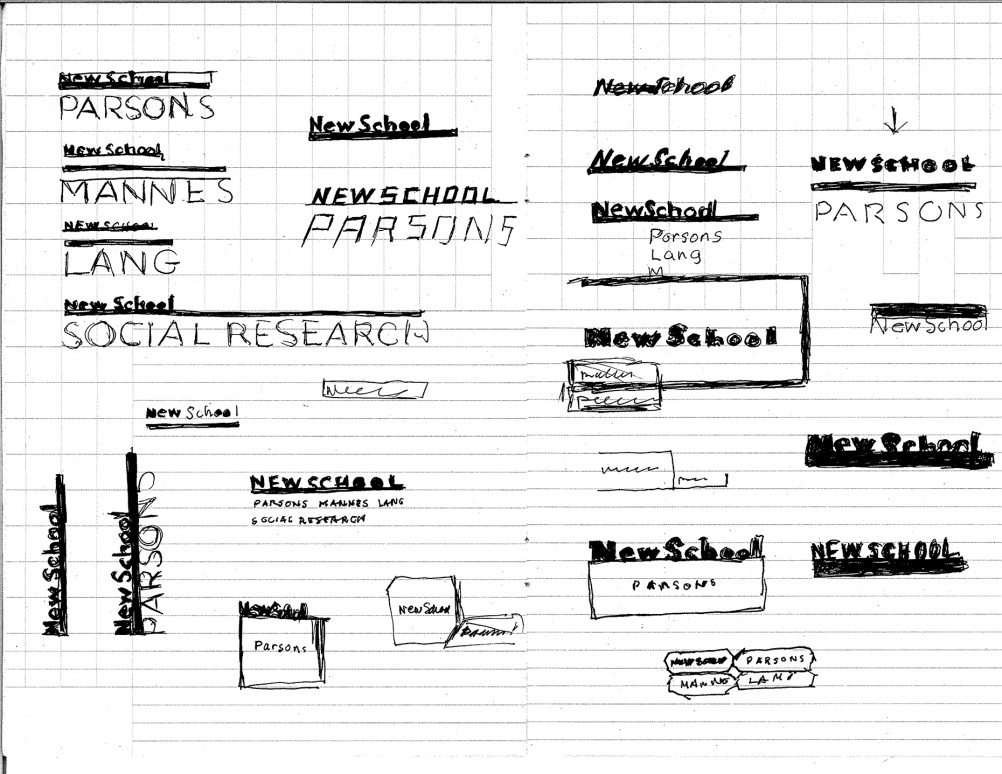 New School
PARSONS
New School
MANNES
NEW SCHOOL
LANG
New School
SOCIAL RESEARCH
New School
NEW SCHOOL
PARSONS
New School
New School
New School
PARSONS
NEW SCHOOL
PARSONS MANNES LANG
SOCIAL RESEARCH
New School
Parsons
New School
New School
New School
New School
Parsons
Lang
M
New School
NEW SCHOOL
PARSONS
New School
New School
New School
PARSONS
NEW SCHOOL
NEW SCHOOL PARSONS
MANNE LANG